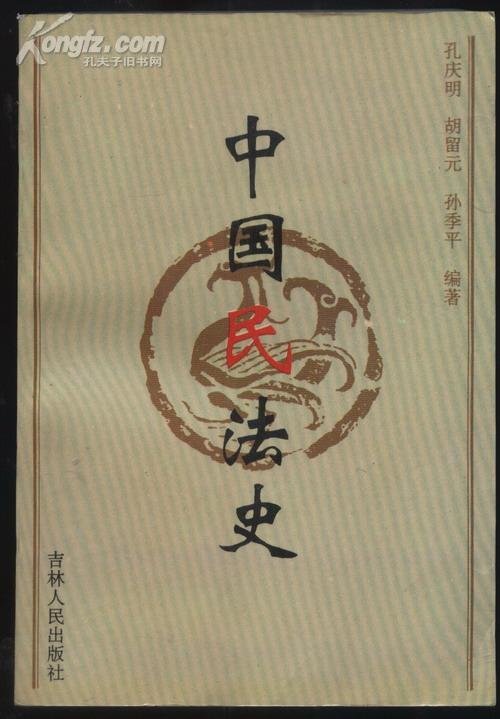 Kongfz.com
孔夫子旧书网
孔庆明 胡留元 孙季平 编著
中国民法史
吉林人民出版社